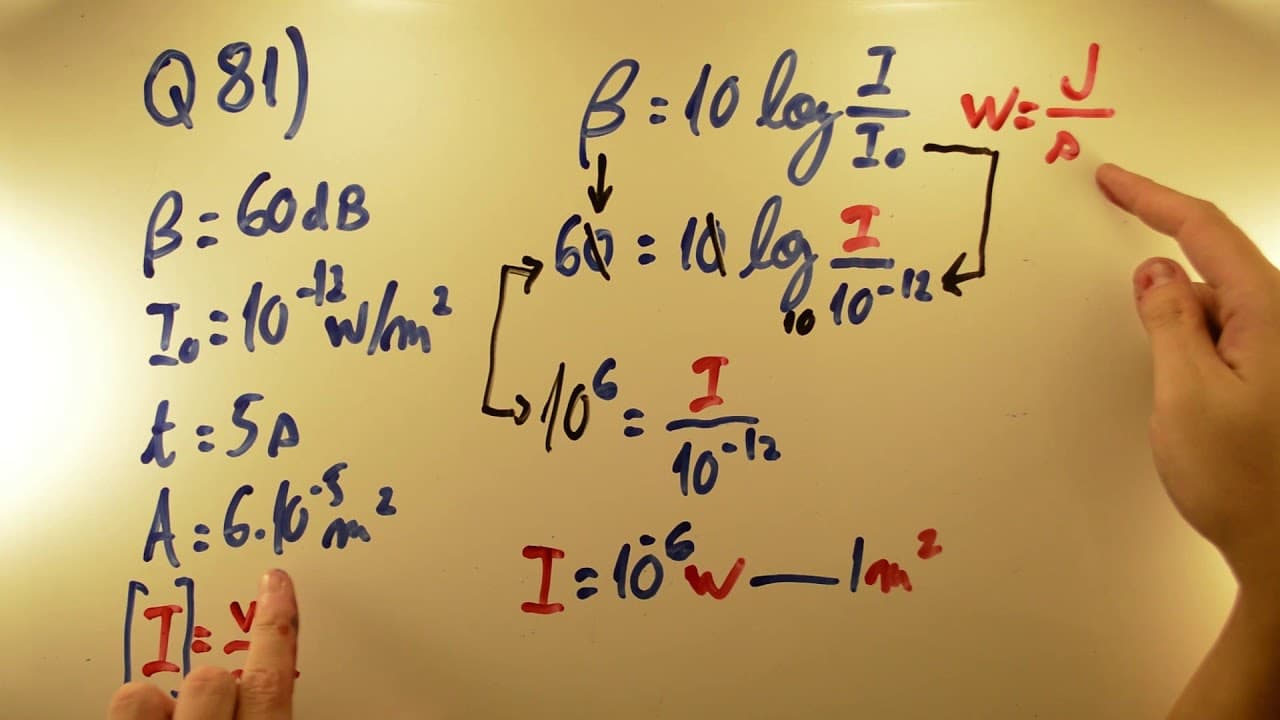 Q 81)
β = 60 dB
I₀ = 10⁻¹² W/m²
t = 5 s
A = 6.10⁻⁵ m²
[I] =
β = 10 log I/I₀
W = J/s
60 = 10 log₁₀ I/10⁻¹²
10⁶ = I/10⁻¹²
I = 10⁻⁶ W — 1m²